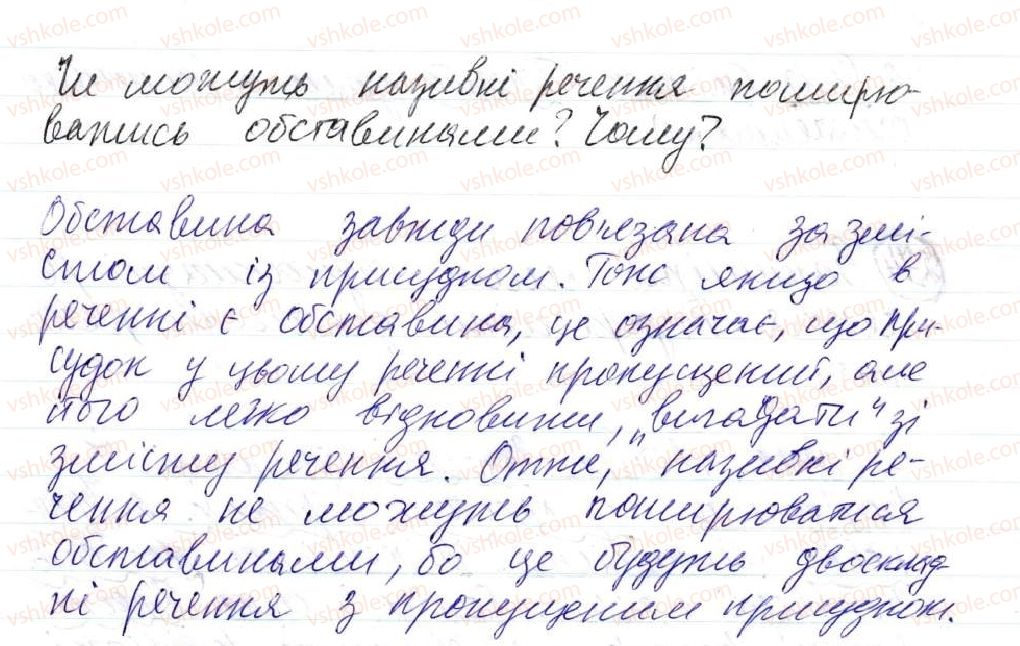 Чи можуть називні речення поширю-
ватись обставинами? Чому?
Обставина завжди пов'язана за змі-
стом із присудком. Тож якщо в
реченні є обставина, це означає, що при-
судок у цьому реченні пропущений, але
його легко відновити, „вгадати" зі
змісту речення. Отже, називні ре-
чення не можуть поширюватися
обставинами, бо це будуть двосклад
ні речення з пропущеним присудком.